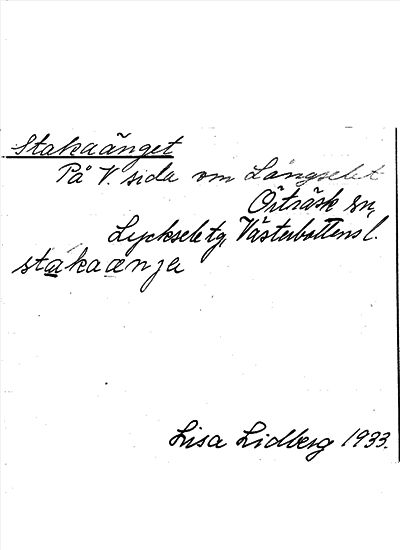 Stakaänget
På V. sida om Långselet
Örträsk sn,
Lycksele tg, Västerbottens l.
stakaänja
Lisa Lidberg 1933.